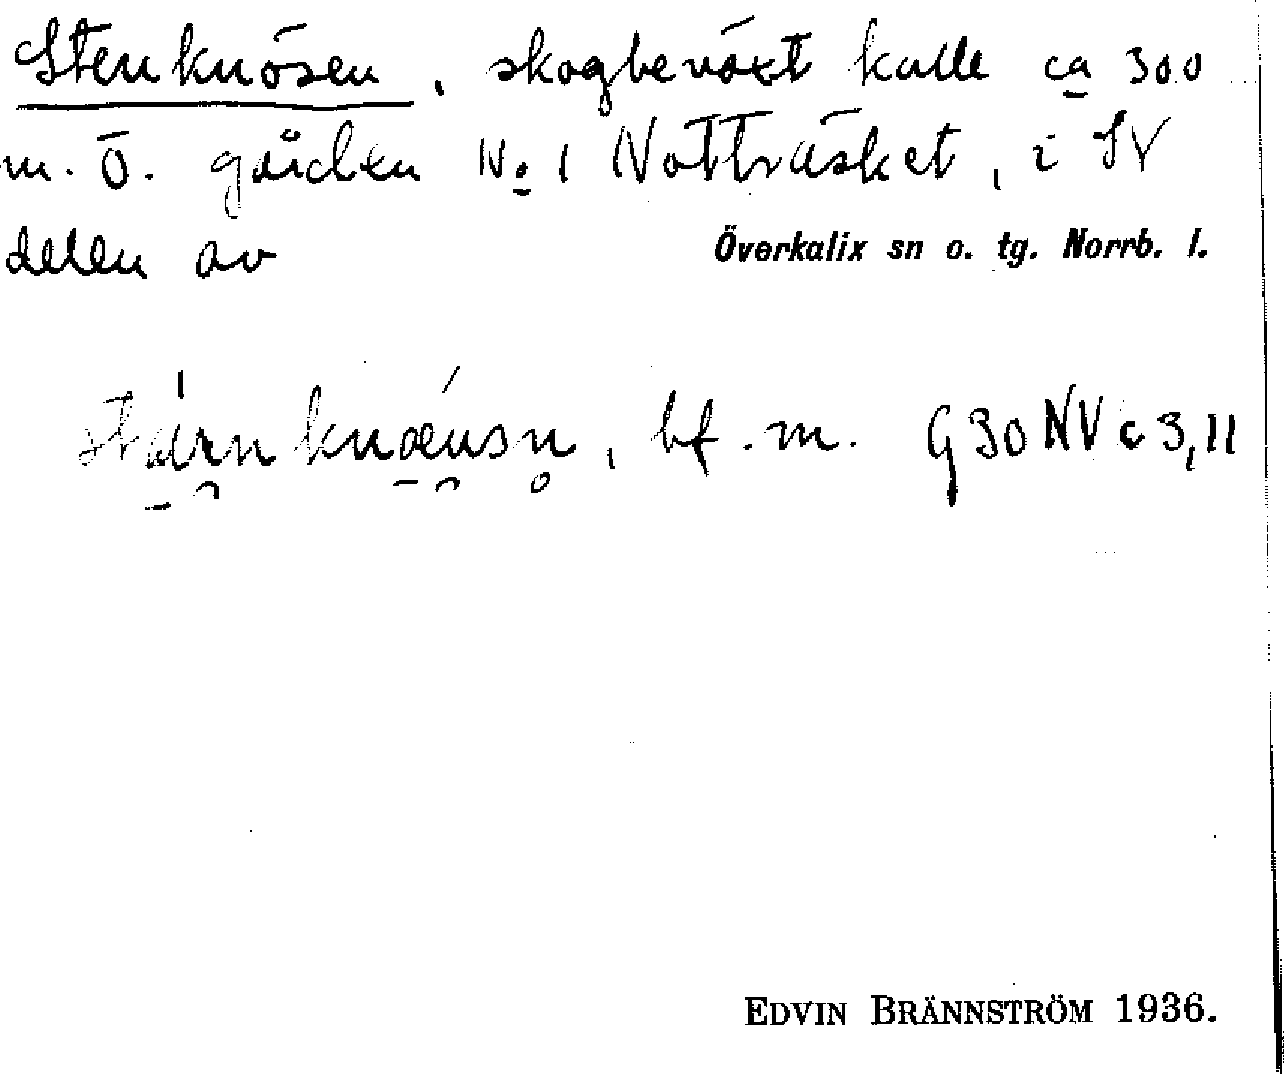 Stenknösen, skogbeväxt kulle ca 300
m. Ö. gården No 1 Notträsket, i SV
delen av Överkalix sn o. tg. Norrb. l.
bf. m. G 30 NV c 3,11
EDVIN BRÄNNSTRÖM 1936.